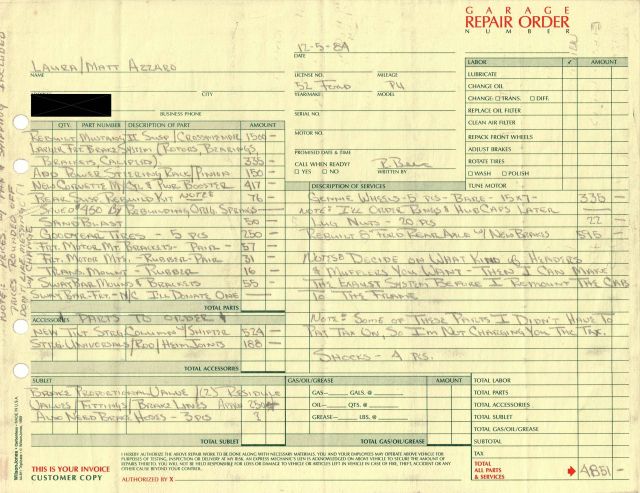 GARAGE
REPAIR ORDER
NUMBER
12-5-84
DATE
LAURA/MATT AZZARO
NAME
LICENSE NO. MILEAGE
52 FORD P4
YEAR/MAKE MODEL
CITY
BUSINESS PHONE
SERIAL NO.
MOTOR NO.
PROMISED DATE & TIME
CALL WHEN READY?
YES NO
WRITTEN BY
LABOR ✓ AMOUNT
LUBRICATE
CHANGE OIL
CHANGE: TRANS. DIFF.
REPLACE OIL FILTER
CLEAN AIR FILTER
REPACK FRONT WHEELS
ADJUST BRAKES
ROTATE TIRES
WASH POLISH
TUNE MOTOR
QTY. PART NUMBER DESCRIPTION OF PART AMOUNT
REBUILT MUSTANG II SUSP/CROSSMEMBER 1500 —
LARGER FRT. BRAKE SYSTEM (ROTORS BEARINGS,
BRACKETS, CALIPERS) 335 —
ADD POWER STEERING RACK/PINION 150 —
NEW CORVETTE M/CYL & PWR BOOSTER 417 —
REAR SUSP REBUILD KIT NOTE 76 —
SAVED $450 BY REBUILDING ORIG. SPRINGS
SAND BLAST 50 —
GOODYEAR TIRES - 5 PCS 250 —
FRT. MOTOR MT. BRACKETS - PAIR - 57 —
FRT. MOTOR MTS. - RUBBER - PAIR 31 —
TRANS. MOUNT - RUBBER 16 —
SWAY BAR MOUNTS & BRACKETS 55 —
SWAY BAR-FRT.-N/C I'LL DONATE ONE —
TOTAL PARTS
DESCRIPTION OF SERVICES
GENNIE WHEELS - 5 PCS - BARE - 15x7 - 335 —
NOTE: I'LL ORDER RINGS & HUBCAPS LATER —
LUG NUTS - 20 PCS 22 —
REBUILT 8" FORD REAR AXLE W/NEW BRAKES 595 —
NOTE: DECIDE ON WHAT KIND OF HEADERS
& MUFFLERS YOU WANT - THEN I CAN MAKE
THE EXAUST SYSTEM BEFORE I REMOUNT THE CAB
TO THE FRAME
NOTE: SOME OF THESE PARTS I DIDN'T HAVE TO
PAY TAX ON, SO I'M NOT CHARGING YOU THE TAX.
SHOCKS - 4 PCS.
ACCESSORIES PARTS TO ORDER
NEW TILT STRG. COLUMN W/SHIFTER 524 —
STRG. UNIVERSALS/ROD/HEIM JOINTS 188 —
TOTAL ACCESSORIES
SUBLET AMOUNT
BRAKE PROPORTIONAL VALVE/(2) RESIDULE
VALVES/FITTINGS/BRAKE LINES APPROX 250
ALSO NEED BRAKE HOSES - 3 PCS ?
TOTAL SUBLET
GAS/OIL/GREASE AMOUNT
GAS— GALS. @
OIL— QTS. @
GREASE— LBS. @
TOTAL GAS/OIL/GREASE
TOTAL LABOR
TOTAL PARTS
TOTAL ACCESSORIES
TOTAL SUBLET
TOTAL GAS/OIL/GREASE
SUBTOTAL
TAX
TOTAL
ALL PARTS
& SERVICES
4851 —
THIS IS YOUR INVOICE
CUSTOMER COPY
I HEREBY AUTHORIZE THE ABOVE REPAIR WORK TO BE DONE ALONG WITH NECESSARY MATERIALS. YOU AND YOUR EMPLOYEES MAY OPERATE ABOVE VEHICLE FOR
PURPOSES OF TESTING, INSPECTION OR DELIVERY AT MY RISK. AN EXPRESS MECHANIC'S LIEN IS ACKNOWLEDGED ON ABOVE VEHICLE TO SECURE THE AMOUNT OF
REPAIRS THERETO. YOU WILL NOT BE HELD RESPONSIBLE FOR LOSS OR DAMAGE TO VEHICLE OR ARTICLES LEFT IN VEHICLE IN CASE OF FIRE, THEFT, ACCIDENT OR ANY
OTHER CAUSE BEYOND YOUR CONTROL.
AUTHORIZED BY X
NOTE: PRICES HAVE TAX & SHIPPING INCLUDED
PRICES ROUNDED OFF